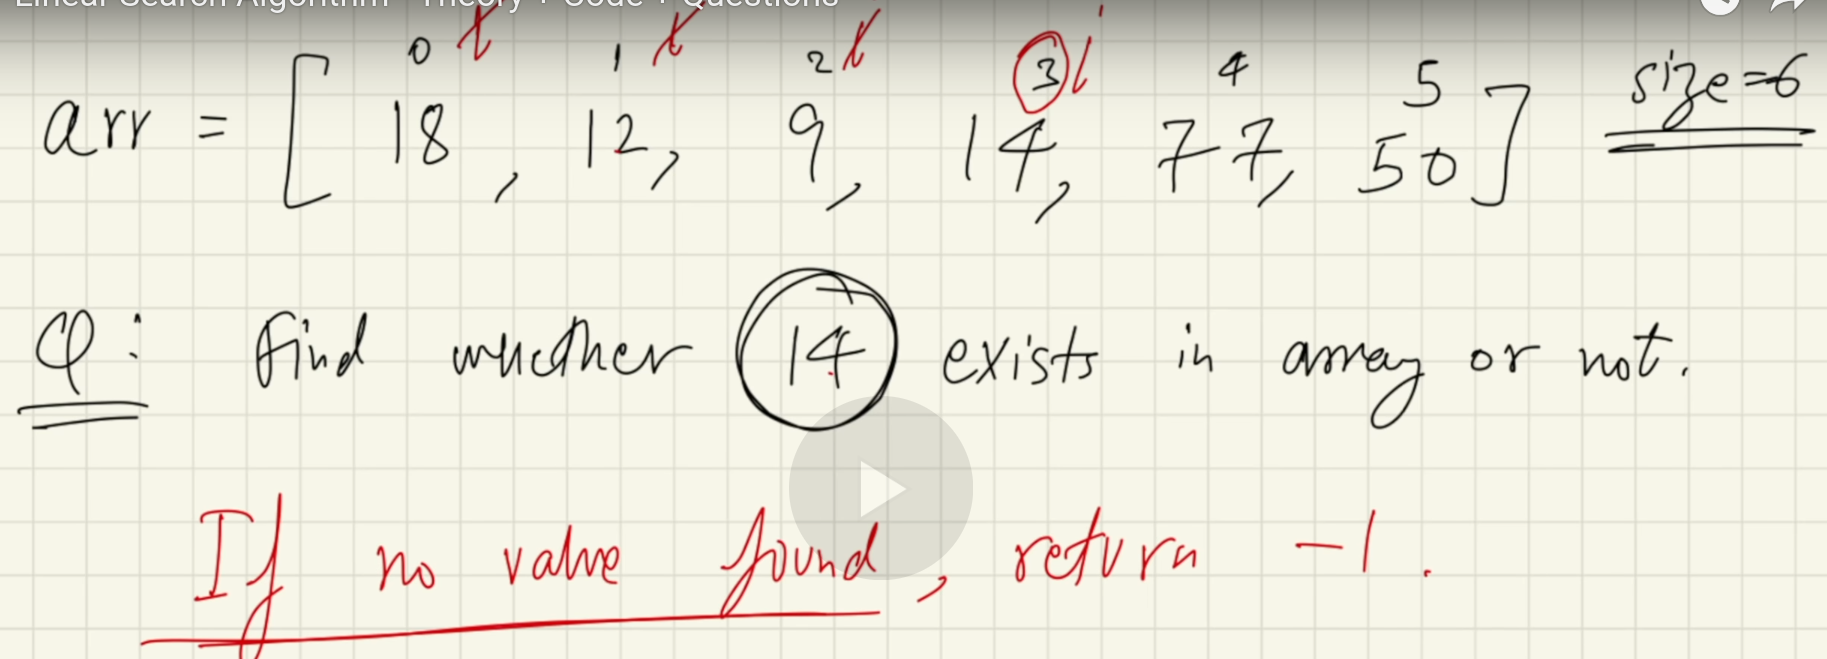 Linear Search Algorithm - Theory + Code + Questions
0 i 1 i 2 i 3 i 4 5
arr = [ 18, 12, 9, 14, 77, 50 ] size=6
Q: Find whether 14 exists in array or not.
If no value found, return -1.